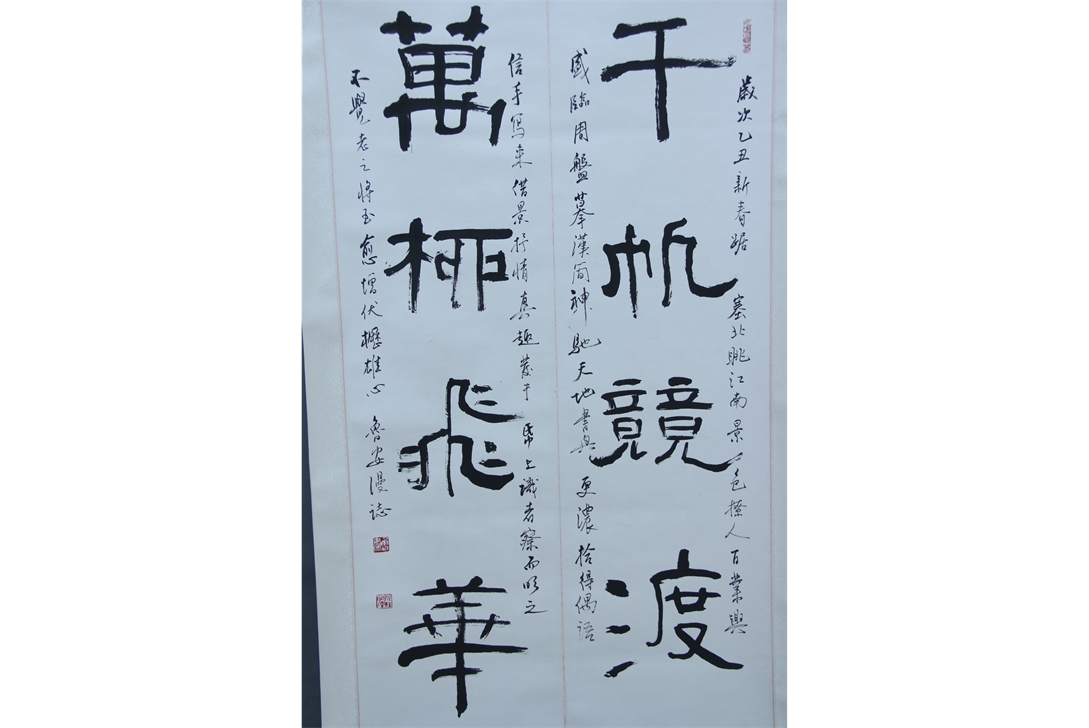 歲次乙丑新春踞塞北眺江南景色撩人百業興
千帆競渡
盛臨周盤摹漢簡神馳天地書興更濃拾得偶語
信手寫來借景抒情真趣發于帋上識者察而明之
萬桺飛華
不覺老之將至愈增伏櫪雄心 魯安漫誌